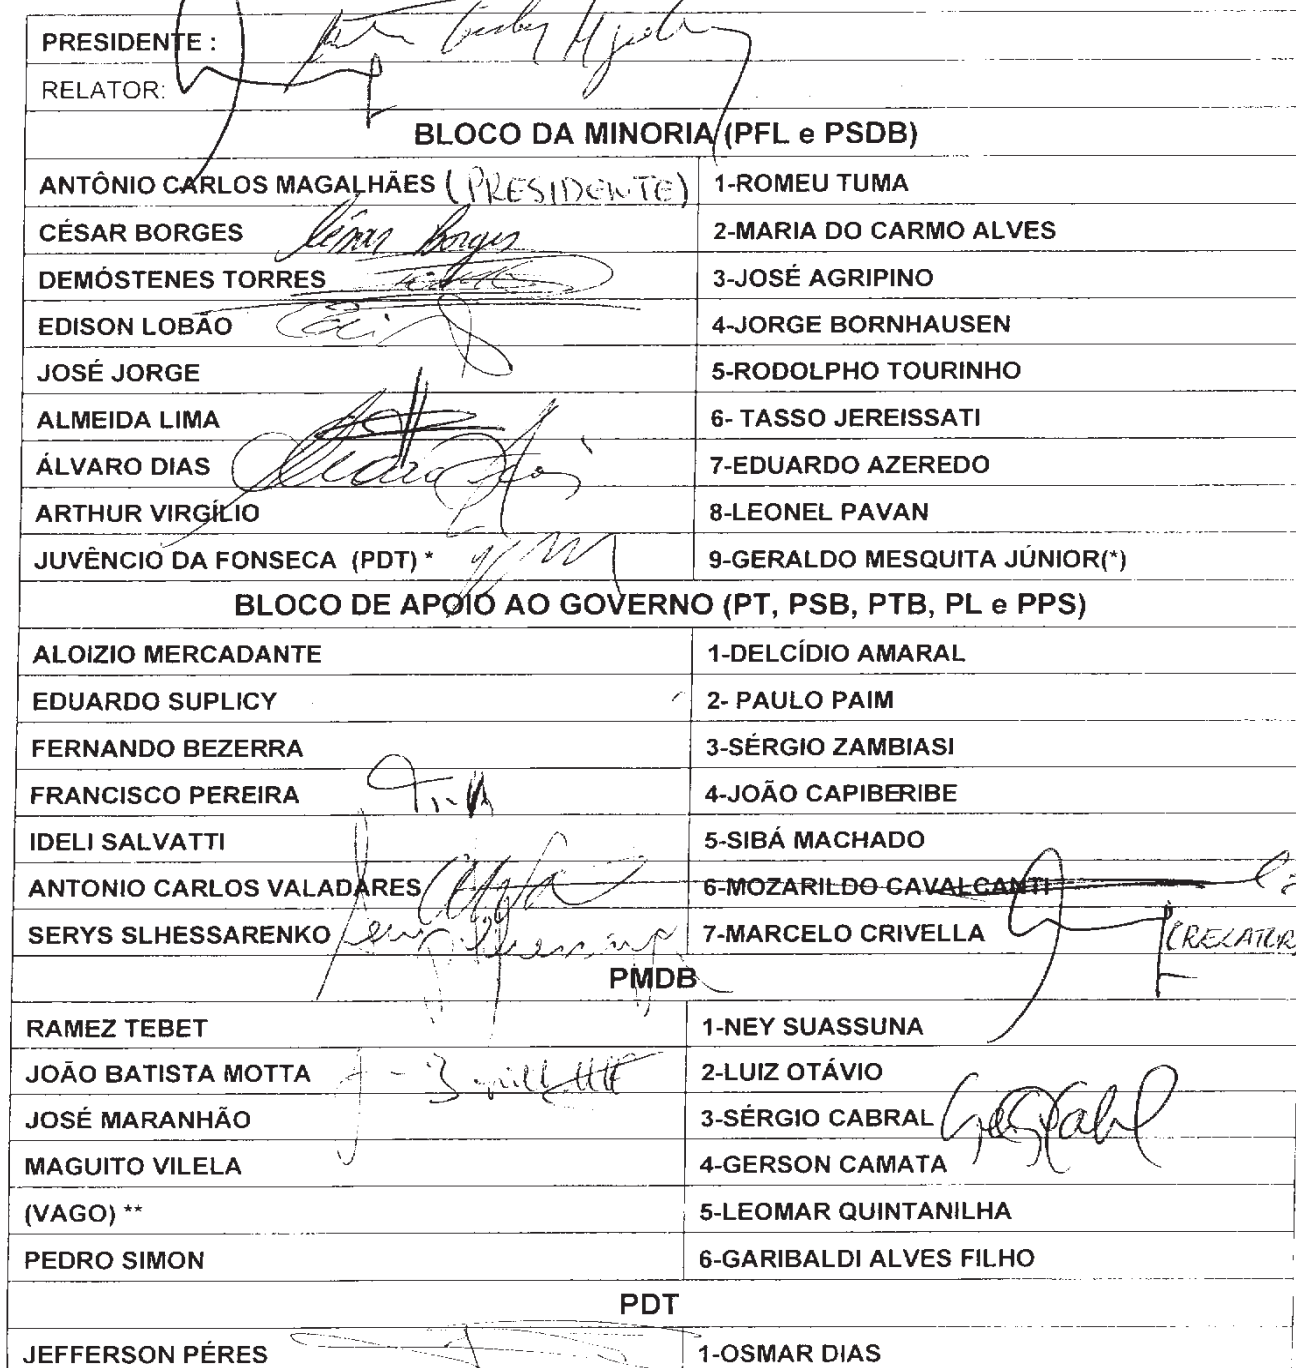 PRESIDENTE :
RELATOR:
BLOCO DA MINORIA (PFL e PSDB)
ANTÔNIO CARLOS MAGALHÃES (PRESIDENTE) 1-ROMEU TUMA
CÉSAR BORGES César Borges 2-MARIA DO CARMO ALVES
DEMÓSTENES TORRES 3-JOSÉ AGRIPINO
EDISON LOBÃO 4-JORGE BORNHAUSEN
JOSÉ JORGE 5-RODOLPHO TOURINHO
ALMEIDA LIMA 6- TASSO JEREISSATI
ÁLVARO DIAS 7-EDUARDO AZEREDO
ARTHUR VIRGÍLIO 8-LEONEL PAVAN
JUVÊNCIO DA FONSECA (PDT) * 9-GERALDO MESQUITA JÚNIOR(*)
BLOCO DE APOIO AO GOVERNO (PT, PSB, PTB, PL e PPS)
ALOIZIO MERCADANTE 1-DELCÍDIO AMARAL
EDUARDO SUPLICY 2- PAULO PAIM
FERNANDO BEZERRA 3-SÉRGIO ZAMBIASI
FRANCISCO PEREIRA 4-JOÃO CAPIBERIBE
IDELI SALVATTI 5-SIBÁ MACHADO
ANTONIO CARLOS VALADARES 6-MOZARILDO CAVALCANTI
SERYS SLHESSARENKO 7-MARCELO CRIVELLA (RELATOR
PMDB
RAMEZ TEBET 1-NEY SUASSUNA
JOÃO BATISTA MOTTA 2-LUIZ OTÁVIO
JOSÉ MARANHÃO 3-SÉRGIO CABRAL
MAGUITO VILELA 4-GERSON CAMATA
(VAGO) ** 5-LEOMAR QUINTANILHA
PEDRO SIMON 6-GARIBALDI ALVES FILHO
PDT
JEFFERSON PÉRES 1-OSMAR DIAS